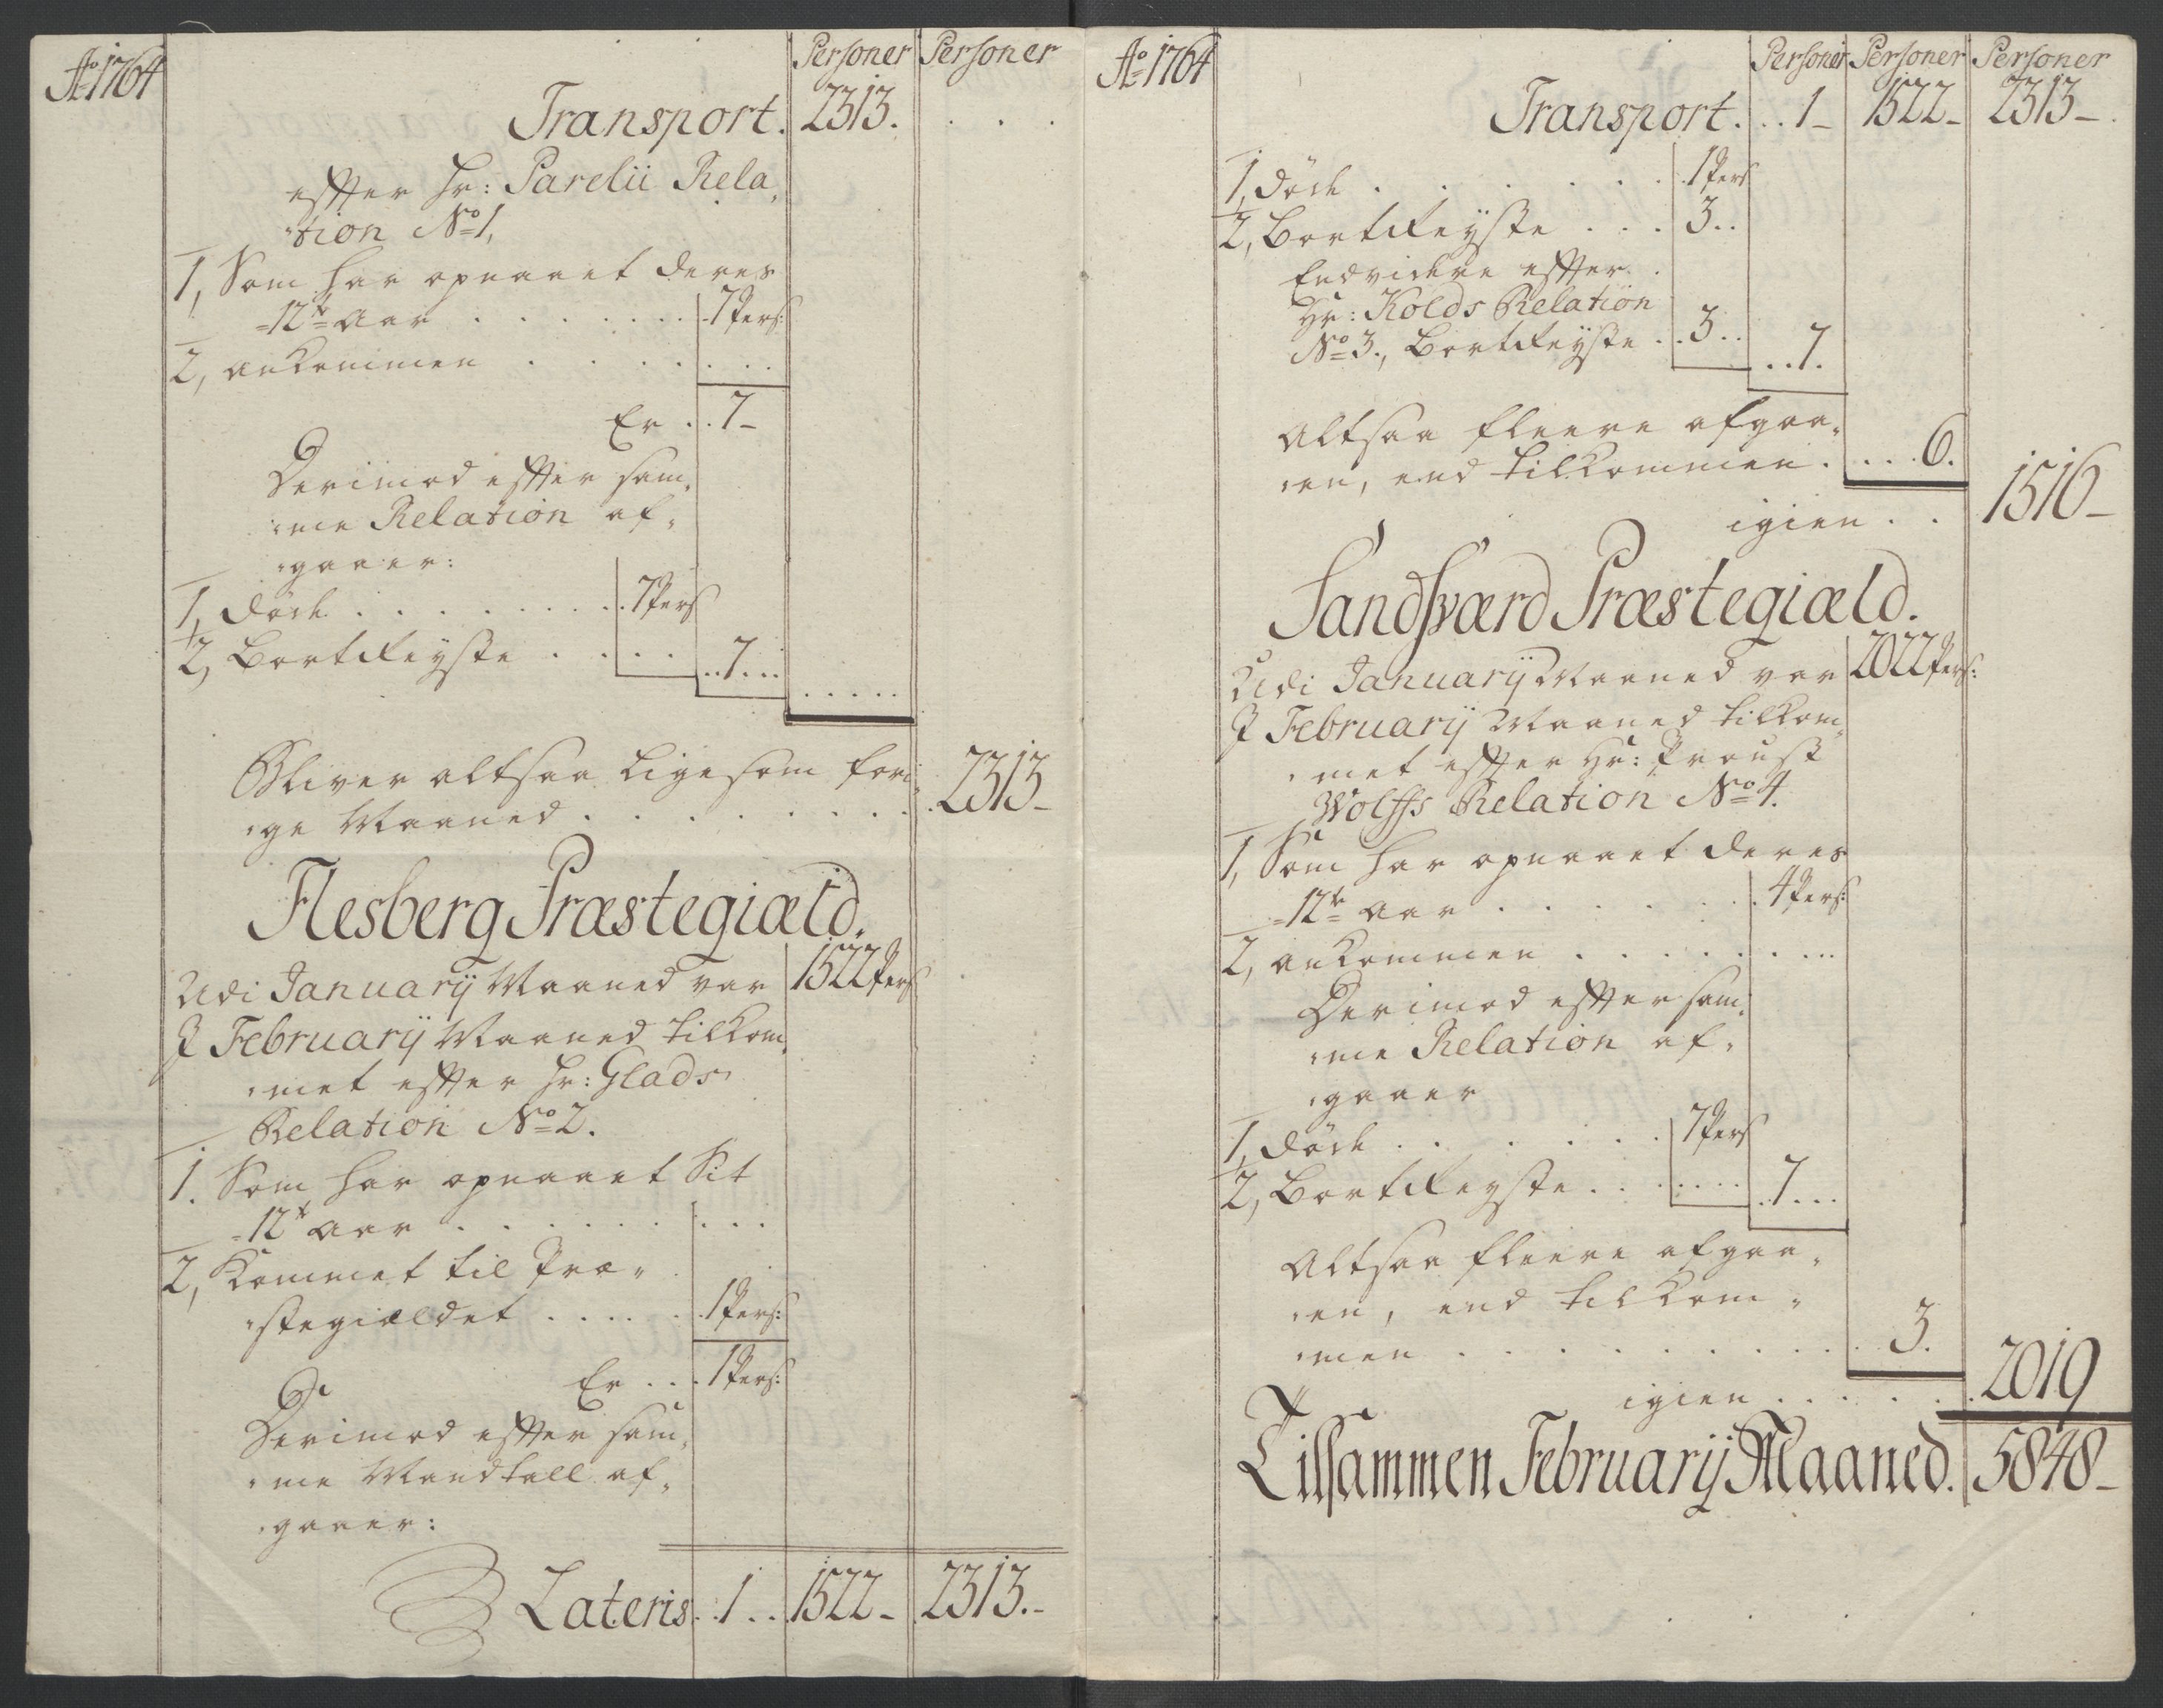 Ao 1764
Personer Personer
Transport. 2313. . . .
effter Hr: Parelii Rela,
,tion No 1,
1, Som har opnaaet deres
12te Aar . . . . . . 7 Pers:
2, ankommen . . . . . . .
Er . . 7 –
Derimod effter sam,
,me Relation af,
,gaaer:
1, döde . . . . . . . . 7 Pers
2, Bortreyste . . . . . . 7 . . . . . . . .
Bliver altsaa ligesom fori,
,ge Maaned . . . . . . . . . 2313 –
Flesberg Præstegiæld.
Udi Januarij Maaned var 1522 Pers
I Februarij Maaned tilkom,
,met effter Hr: Glads
Relation No 2.
1. Som har opnaaet Sit
12te Aar . . . . . . . . .
2, Kommet til Præ,
,stegiældet . . . . . 1 Pers:
Er . . . 1 Pers:
Derimod effter sam,
,me Mandtall af,
,gaaer:
Lateris . . 1 . . 1522 – 2313. –
Ao 1764
Personer Personer Personer
Transport. . . 1 – 1522 – 2313 –
1, döde . . . . . . . . 1 Pers
2, Bortreyste . . . 3 . .
Endvidere effter
Hr: Kolds Relation
No 3., Bortreyste . . 3 . . . . 7.
Altsaa fleere afgaa,
,en, end tilkommen . . . . 6.
igien . . 1516 –
Sandsværd Præstegiæld.
Udi Januarij Maaned var 2022 Pers:
I Februarij Maaned tilkom,
,met effter Hr: Proust
Wolffs Relation No 4.
1, Som har opnaaet deres
12te Aar . . . . . . . 4 Pers:
2, ankommen . . . . . . . . .
Derimod effter sam,
,me Relation af,
,gaaer
1, döde . . . . . . . 7 Pers
2, Bortreyste . . . . . . . . 7 . . .
Altsaa fleere afgaa,
,en, end tilkom,
,men . . . . . . . . . . 3.
igien . . . . . . 2019
Tilsammen Februarij Maaned. 5848 –